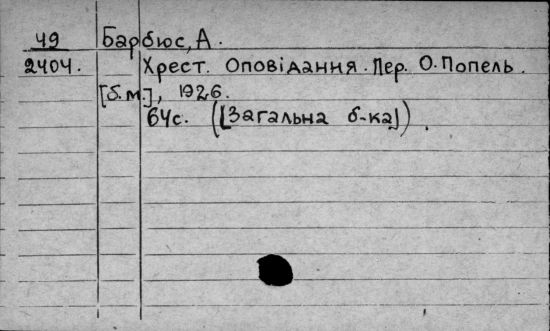 49 Барбюс, А.
2404. Хрест. Оповідання. Пер. О. Попель.
[б.м.], 1926.
64с. ([Загальна б-ка]).